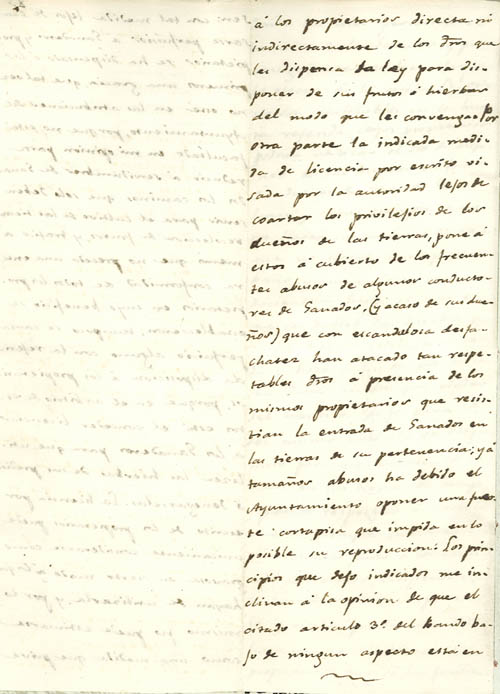 á los propietarios directa ni
indirectamente de los dros que
les dispensa la ley para dis-
poner de sus frutos ó hierbas
del modo que les convenga: Por
otra parte la indicada medi-
da de licencia por escrito vi-
sada por la autoridad lejos de
coartar los privilejios de los
dueños de las tierras, pone á
estos á cubierto de los frecuen-
tes abusos de algunos conducto-
res de Ganados, (y acaso de sus due-
ños) que con escandalosa desfa-
chatez han atacado tan respe-
tables dros á presencia de los
mismos propietarios que resis-
tian la entrada de Ganados en
las tierras de su pertenencia; y á
tamaños abusos ha debido el
Ayuntamiento oponer una fuer-
te cortapisa que impida en lo
posible su reproduccion. Los prin-
cipios que dejo indicados me in-
clinan á la opinion de que el
citado articulo 3º. del bando ba-
jo de ningun aspecto está en